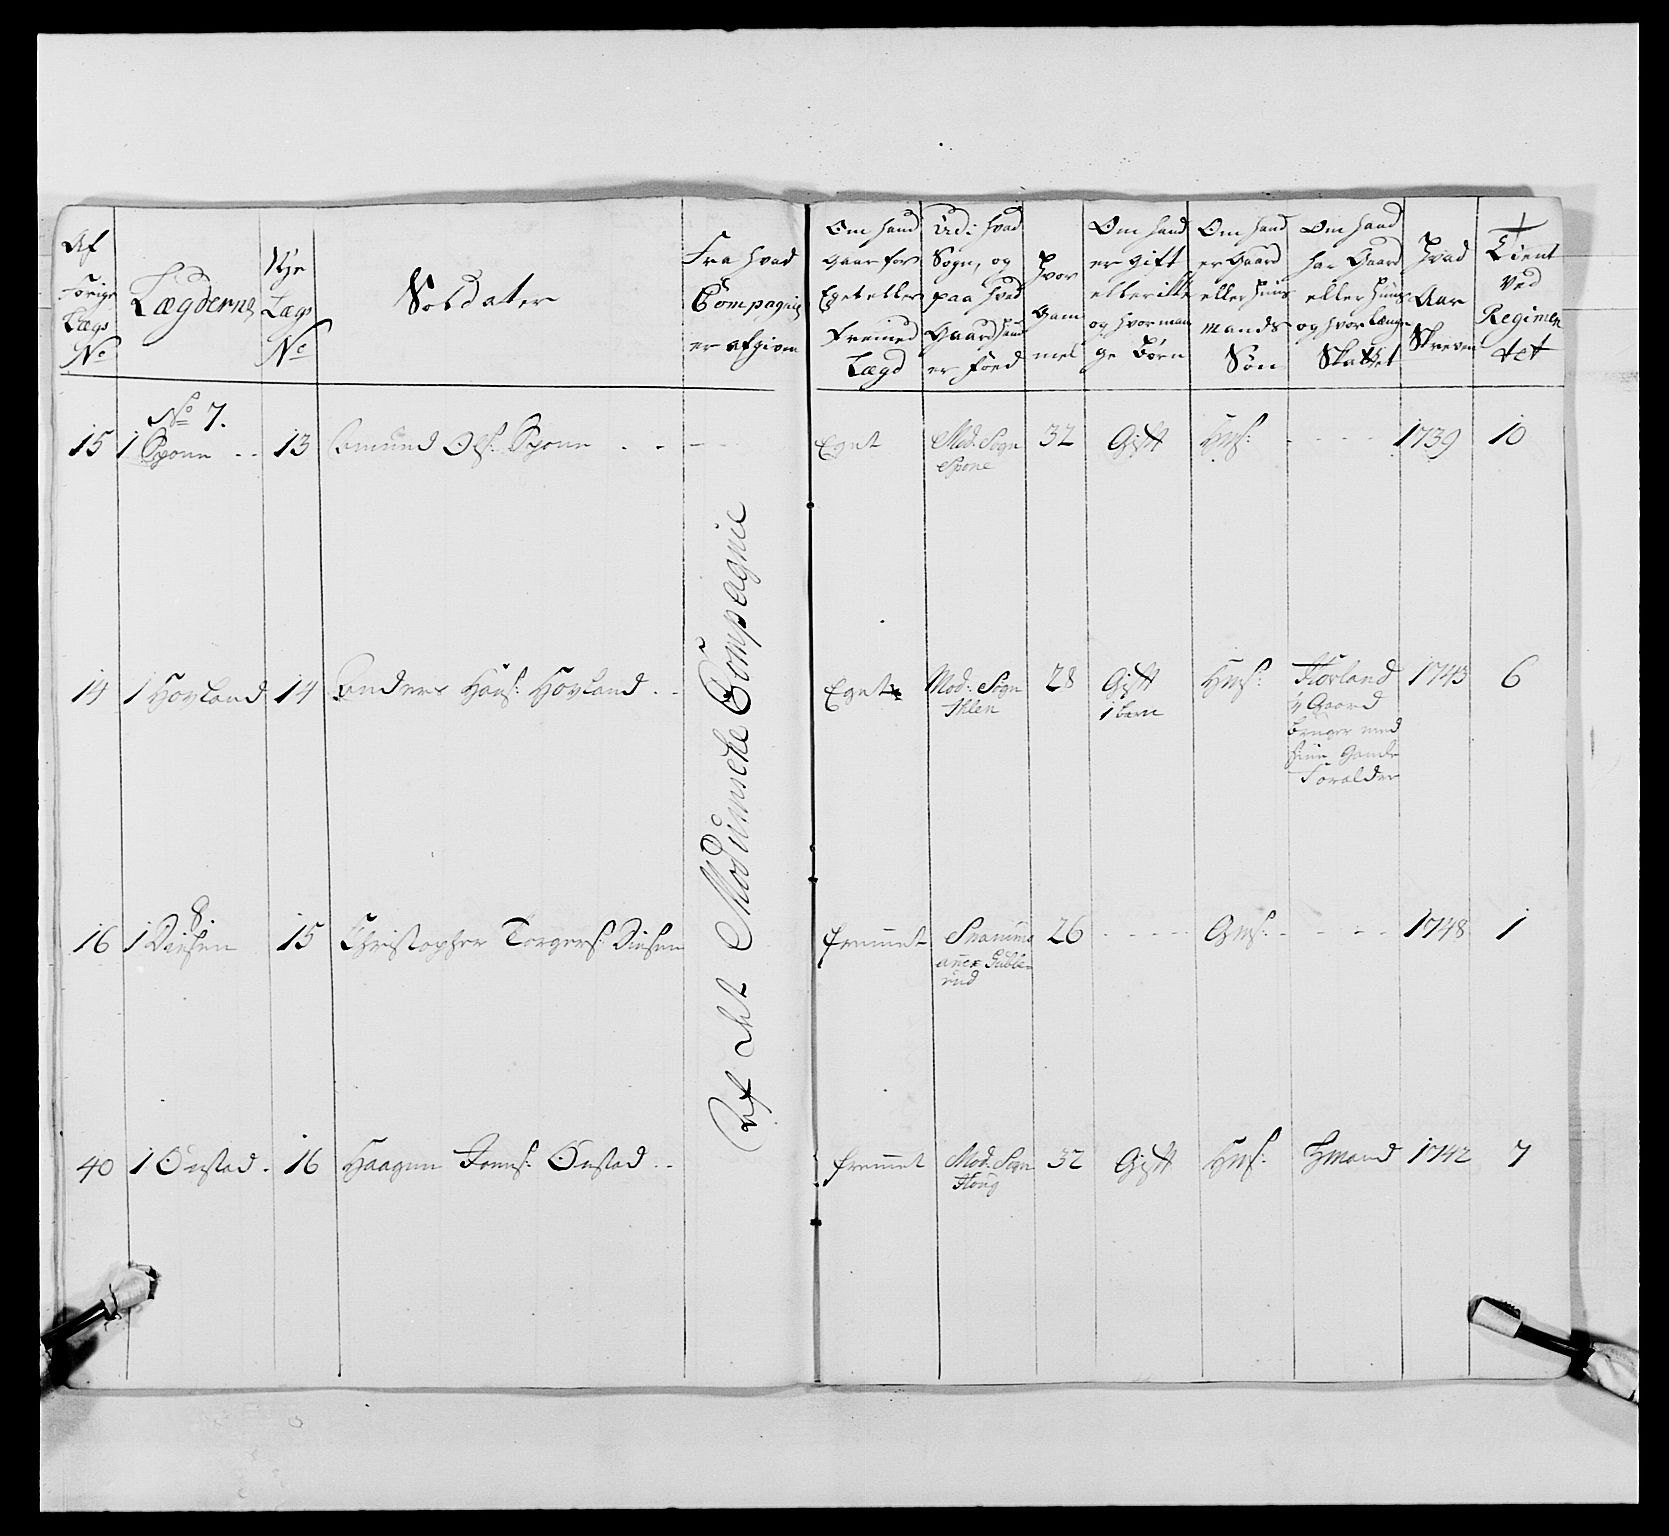 Af Forige Lægs No | Lægderne | Nye Lægs No | Soldater | Fra hvad Compagnie er afgiven | Om hand gaar for Eget eller Fremed Lægd | Udi hvad Sogn, og paa hvad Gaard hand er føed | Hvor Gammel | Om hand er gift eller iche og hvor mange Børn | Om hand er Gaard eller Huus mands Søn | Om hand har Gaard eller Huus og hvor længe Skattet | Hvad Aar Skreven | Tient ved Regimentet
No 7.
15 | 1 Spone | 13 | Amund Ols: Spone | Eget | Mod: Sogn Spone | 32 | Gift | Hms: | 1739 | 10
14 | 1 Hovland | 14 | Anders Hans: Hovland | Eget | Mod: Sogn Ihlen | 28 | Gift 1 barn | Hms: | Hovland ¼ Gaard bruger med sine Gamle Forældre | 1743 | 6
8
16 | 1 Diesen | 15 | Christopher Torgers: Diesen | fremmet | Snarums anex Gubberud | 26 | Gms: | 1748 | 1
40 | 1 Onstad | 16 | Haagen Joens: Onstad | fremmet | Mod: Sogn Houg | 32 | Gift | Hms: | Hmand | 1742 | 7
Af Det Modumske Compagnie